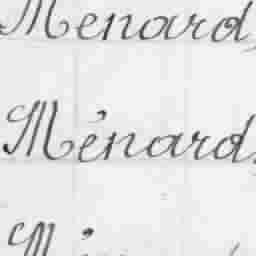 Menard,
Ménard,